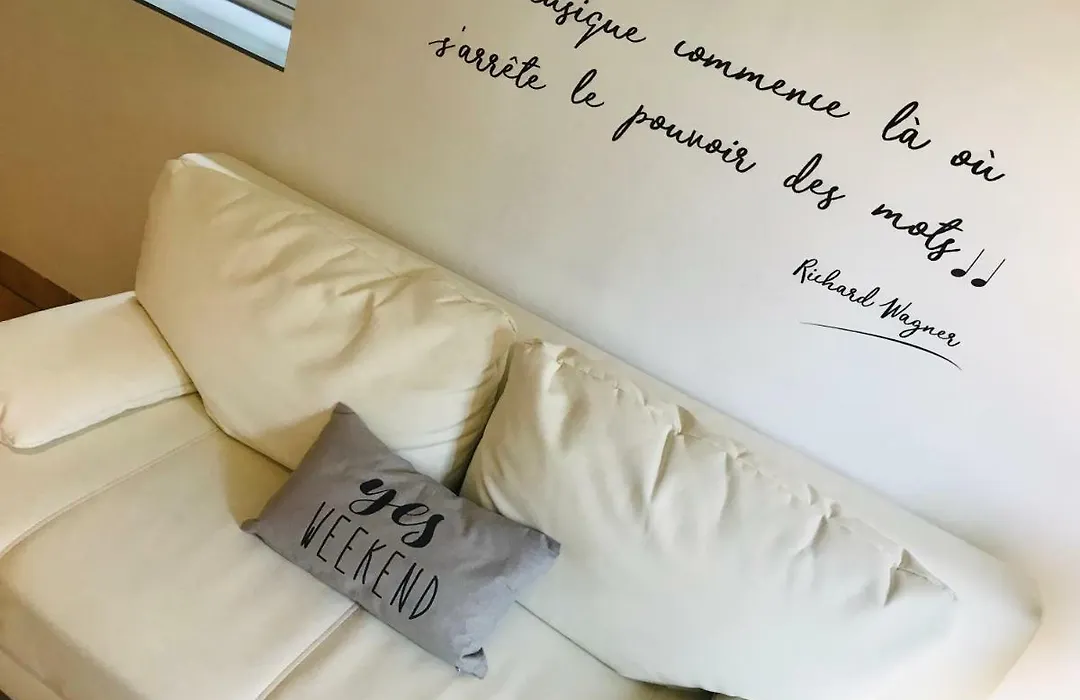 commence là où
s'arrête le pouvoir des mots
Richard Wagner
yes
WEEKEND